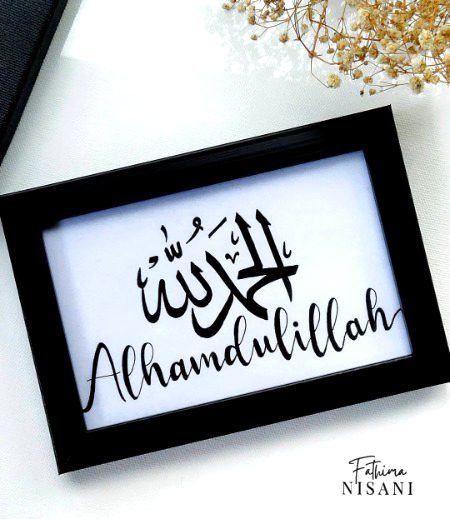 الحمد لله
Alhamdulillah
Fathima
NISANI